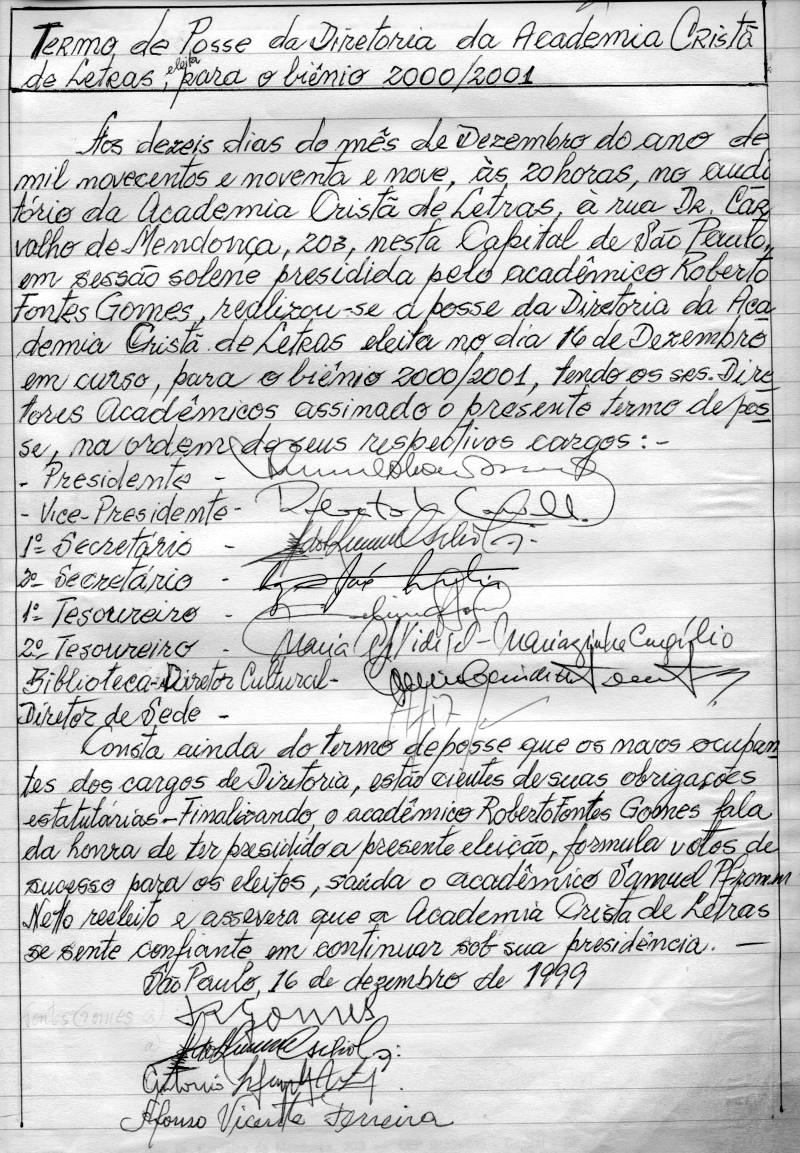 Termo de Posse da Diretoria da Academia Cristã
de Letras, eleita para o biênio 2000/2001
Aos dezeis dias do mês de Dezembro do ano de
mil novecentos e noventa e nove, às 20 horas, no audi
tório da Academia Cristã de Letras, à rua Dr. Car
valho de Mendonça, 203, nesta Capital de São Paulo,
em sessão solene presidida pelo acadêmico Roberto
Fontes Gomes, realizou-se a posse da Diretoria da Aca
demia Cristã de Letras eleita no dia 16 de Dezembro
em curso, para o biênio 2000/2001, tendo os srs. Dire
tores Acadêmicos assinado o presente termo de pos
se, na ordem de seus respectivos cargos:-
- Presidente -
- Vice-Presidente-
1º Secretário -
2º Secretário -
1º Tesoureiro -
2º Tesoureiro - Maria Vidigal - Mariazinha Congílio
Biblioteca-Diretor Cultural-
Diretor de Sede -
Consta ainda do termo de posse que os novos ocupan
tes dos cargos de Diretoria, estão cientes de suas obrigações
estatutárias-Finalizando o acadêmico Roberto Fontes Gomes fala
da honra de ter presidido a presente eleição, formula votos de
sucesso para os eleitos, saúda o acadêmico Samuel Pfromm
Netto reeleito e assevera que a Academia Cristã de Letras
se sente confiante em continuar sob sua presidência. —
São Paulo, 16 de dezembro de 1999
Gomes
Antonio
Afonso Vicente Ferreira